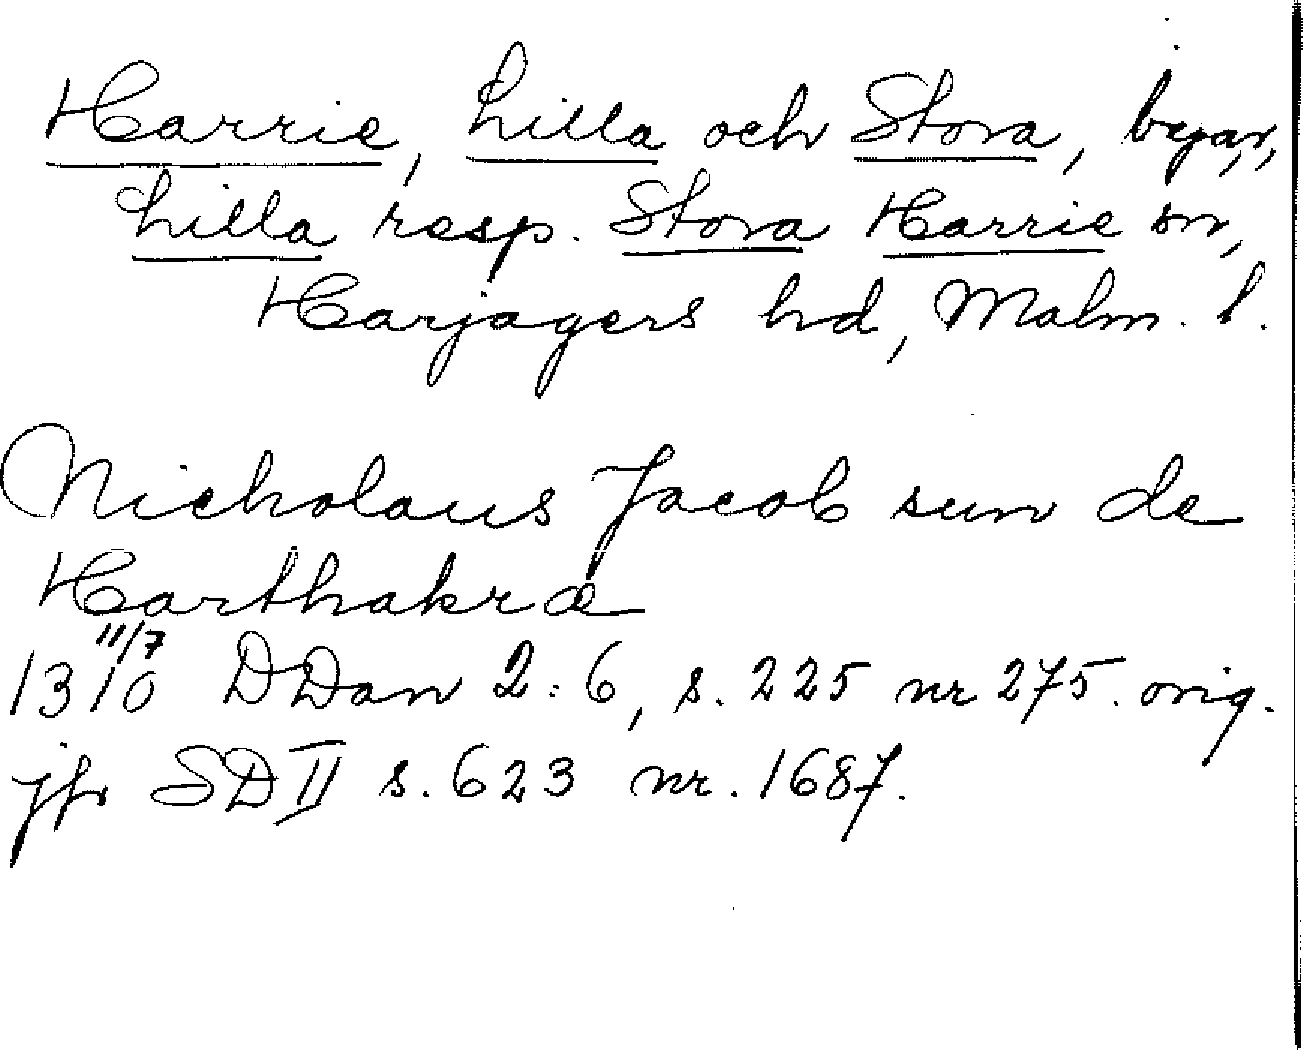 Harrie, Lilla och Stora, byar,
Lilla resp. Stora Harrie sn,
Harjagers hd, Malm. l.
Nicholaus Jacob sun de
Harthakræ
13 11/7 10 DDan 2:6, s. 225 nr 275. orig.
jfr SD II s. 623 nr. 1687.